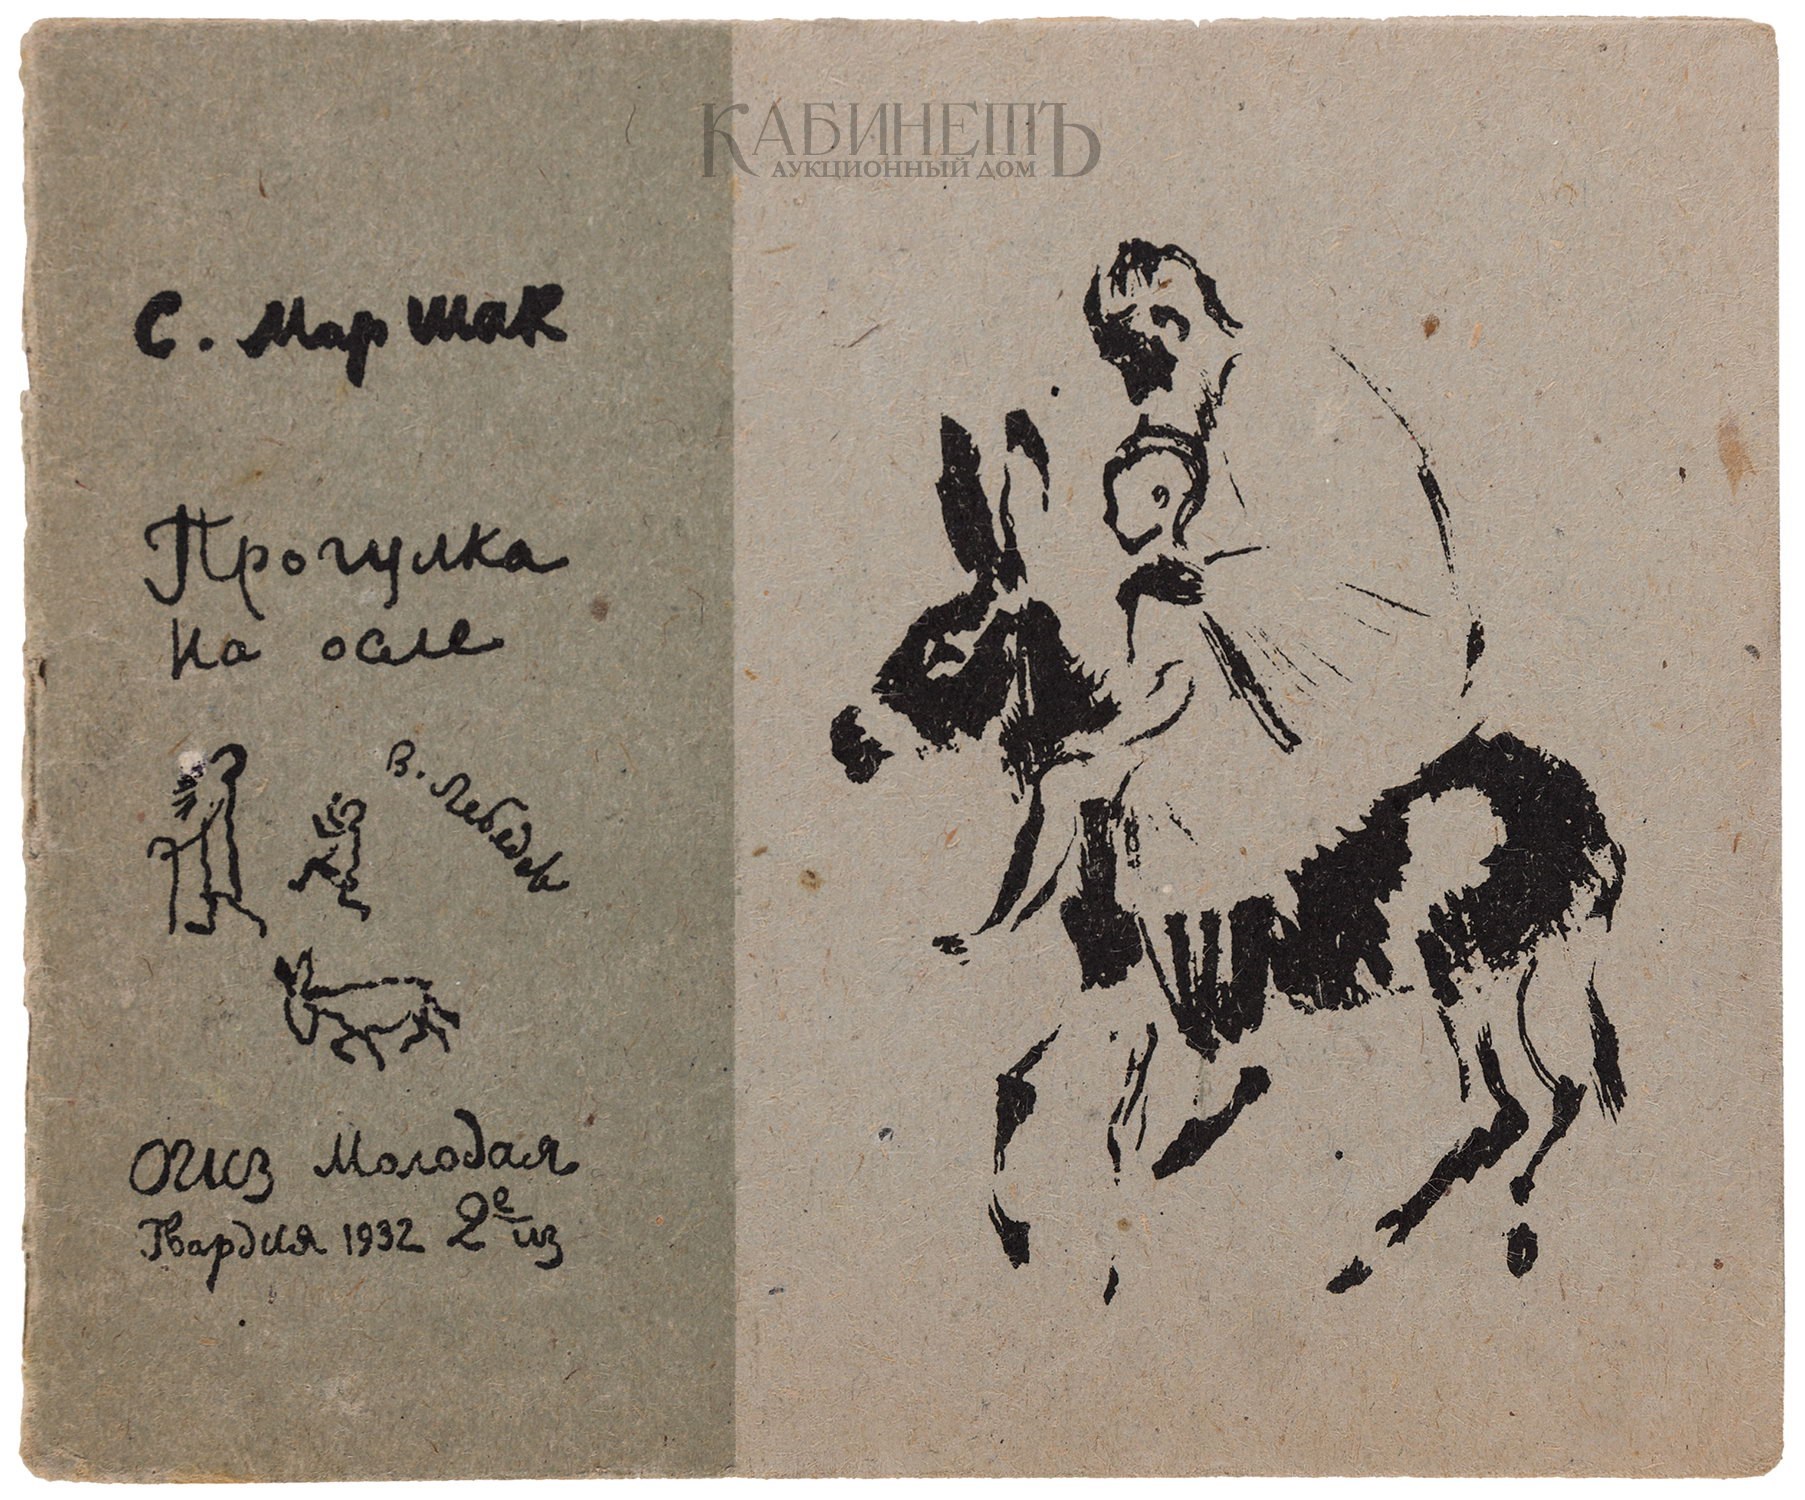 КАБИНЕТЪ
АУКЦИОННЫЙ ДОМ
С. Маршак
Прогулка
на осле
В. Лебедев
ОГИЗ Молодая
Гвардия 1932 2е из